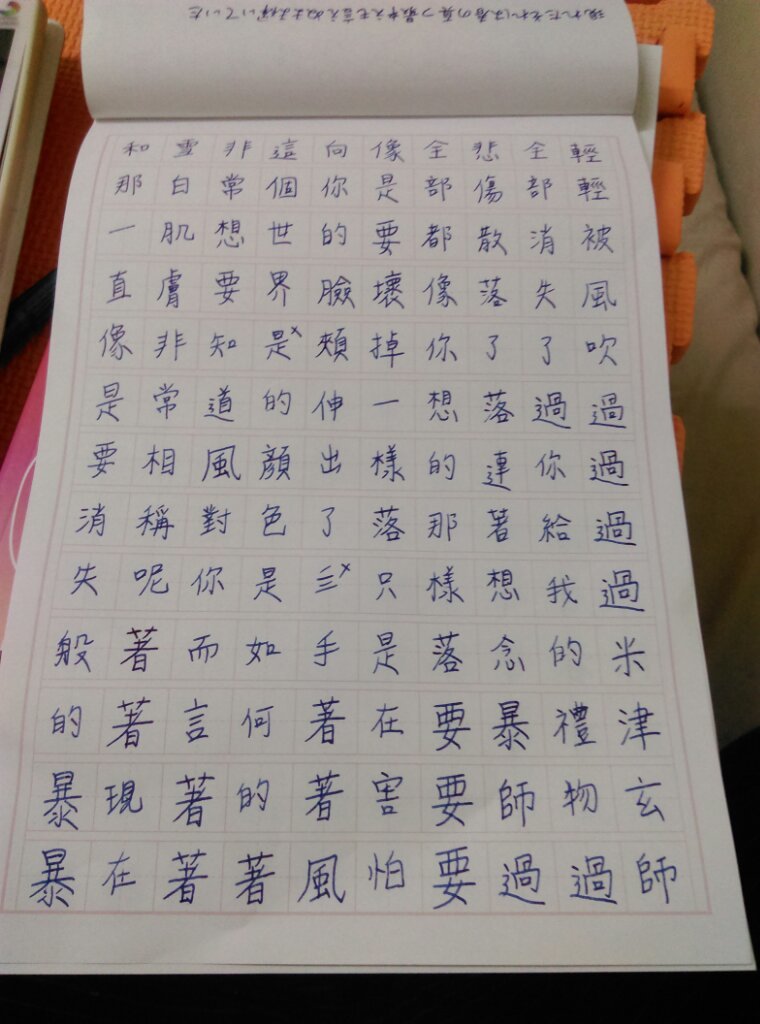 輕輕被風吹過過過過米津玄師
全部消失了過你給我的禮物過
悲傷散落了落連著想念暴師過
全部都像你想的那樣落要要要
像是要壞掉一樣落只是在害怕
向你的臉頰伸出了手著著風
這個世界是的顏色是如何的著
非常想要知道風對你而言著著
雪白肌膚非常相稱呢著著現在
和那一直像是要消失般的暴暴